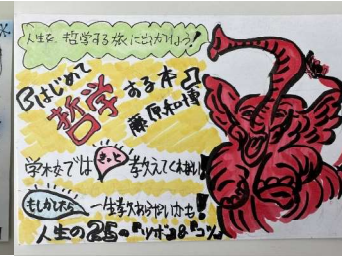 人生を、哲学する旅に出かけよう!
『はじめて
哲学する本』
藤原和博
学校では きっと 教えてくれない!
もしかしたら 一生教わらないかも!
人生の25の『ツボ』&『コツ』